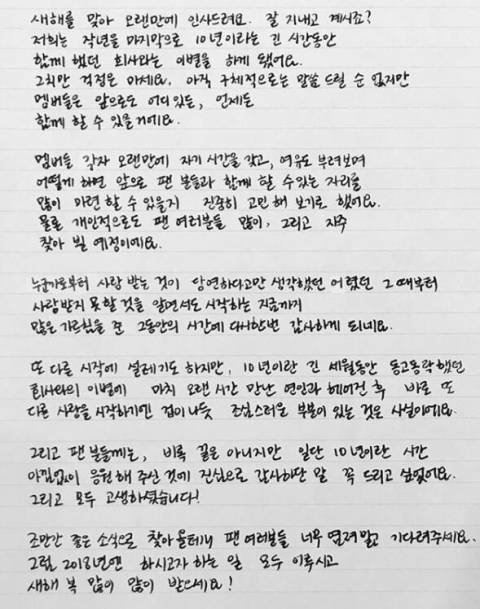 새해를 맞아 오랜만에 인사드려요. 잘 지내고 계시죠?
저희는 작년을 마지막으로 10년이라는 긴 시간동안
함께 했던 회사와는 이별을 하게 됐어요.
그치만 걱정은 마세요. 아직 구체적으로는 말씀 드릴 순 없지만
멤버들은 앞으로도 어디있든, 언제든
함께 할 수 있을거에요.
멤버들 각자 오랜만에 자기 시간을 갖고, 여유도 부려보며
어떻게 하면 앞으로 팬 분들과 함께 할 수 있는 자리를
많이 마련 할 수 있을지 진중히 고민 해 보기로 했어요.
물론 개인적으로도 팬 여러분들 많이, 그리고 자주
찾아 뵐 예정이에요.
누군가로부터 사랑 받는 것이 당연하다고만 생각했던 어렸던 그 때부터
사랑받지 못할 것을 알면서도 시작하는 지금까지
많은 가르침을 준 그동안의 시간에 다시한번 감사하게 되네요.
또 다른 시작에 설레기도 하지만, 10년이란 긴 세월동안 동고동락했던
회사와의 이별에 마치 오랜 시간 만난 연인과 헤어진 후 바로 또
다른 사랑을 시작하기엔 겁이 나듯 조심스러운 부분이 있는 것은 사실이에요.
그리고 팬 분들께는, 비록 끝은 아니지만 일단 10년이란 시간
아낌없이 응원해 주신 것에 진심으로 감사하단 말 꼭 드리고 싶었어요.
그리고 모두 고생하셨습니다!
조만간 좋은 소식으로 찾아올테니 팬 여러분들 너무 염려말고 기다려주세요.
그럼 2018년엔 하시고자 하는 일 모두 이루시고
새해 복 많이 많이 받으세요!